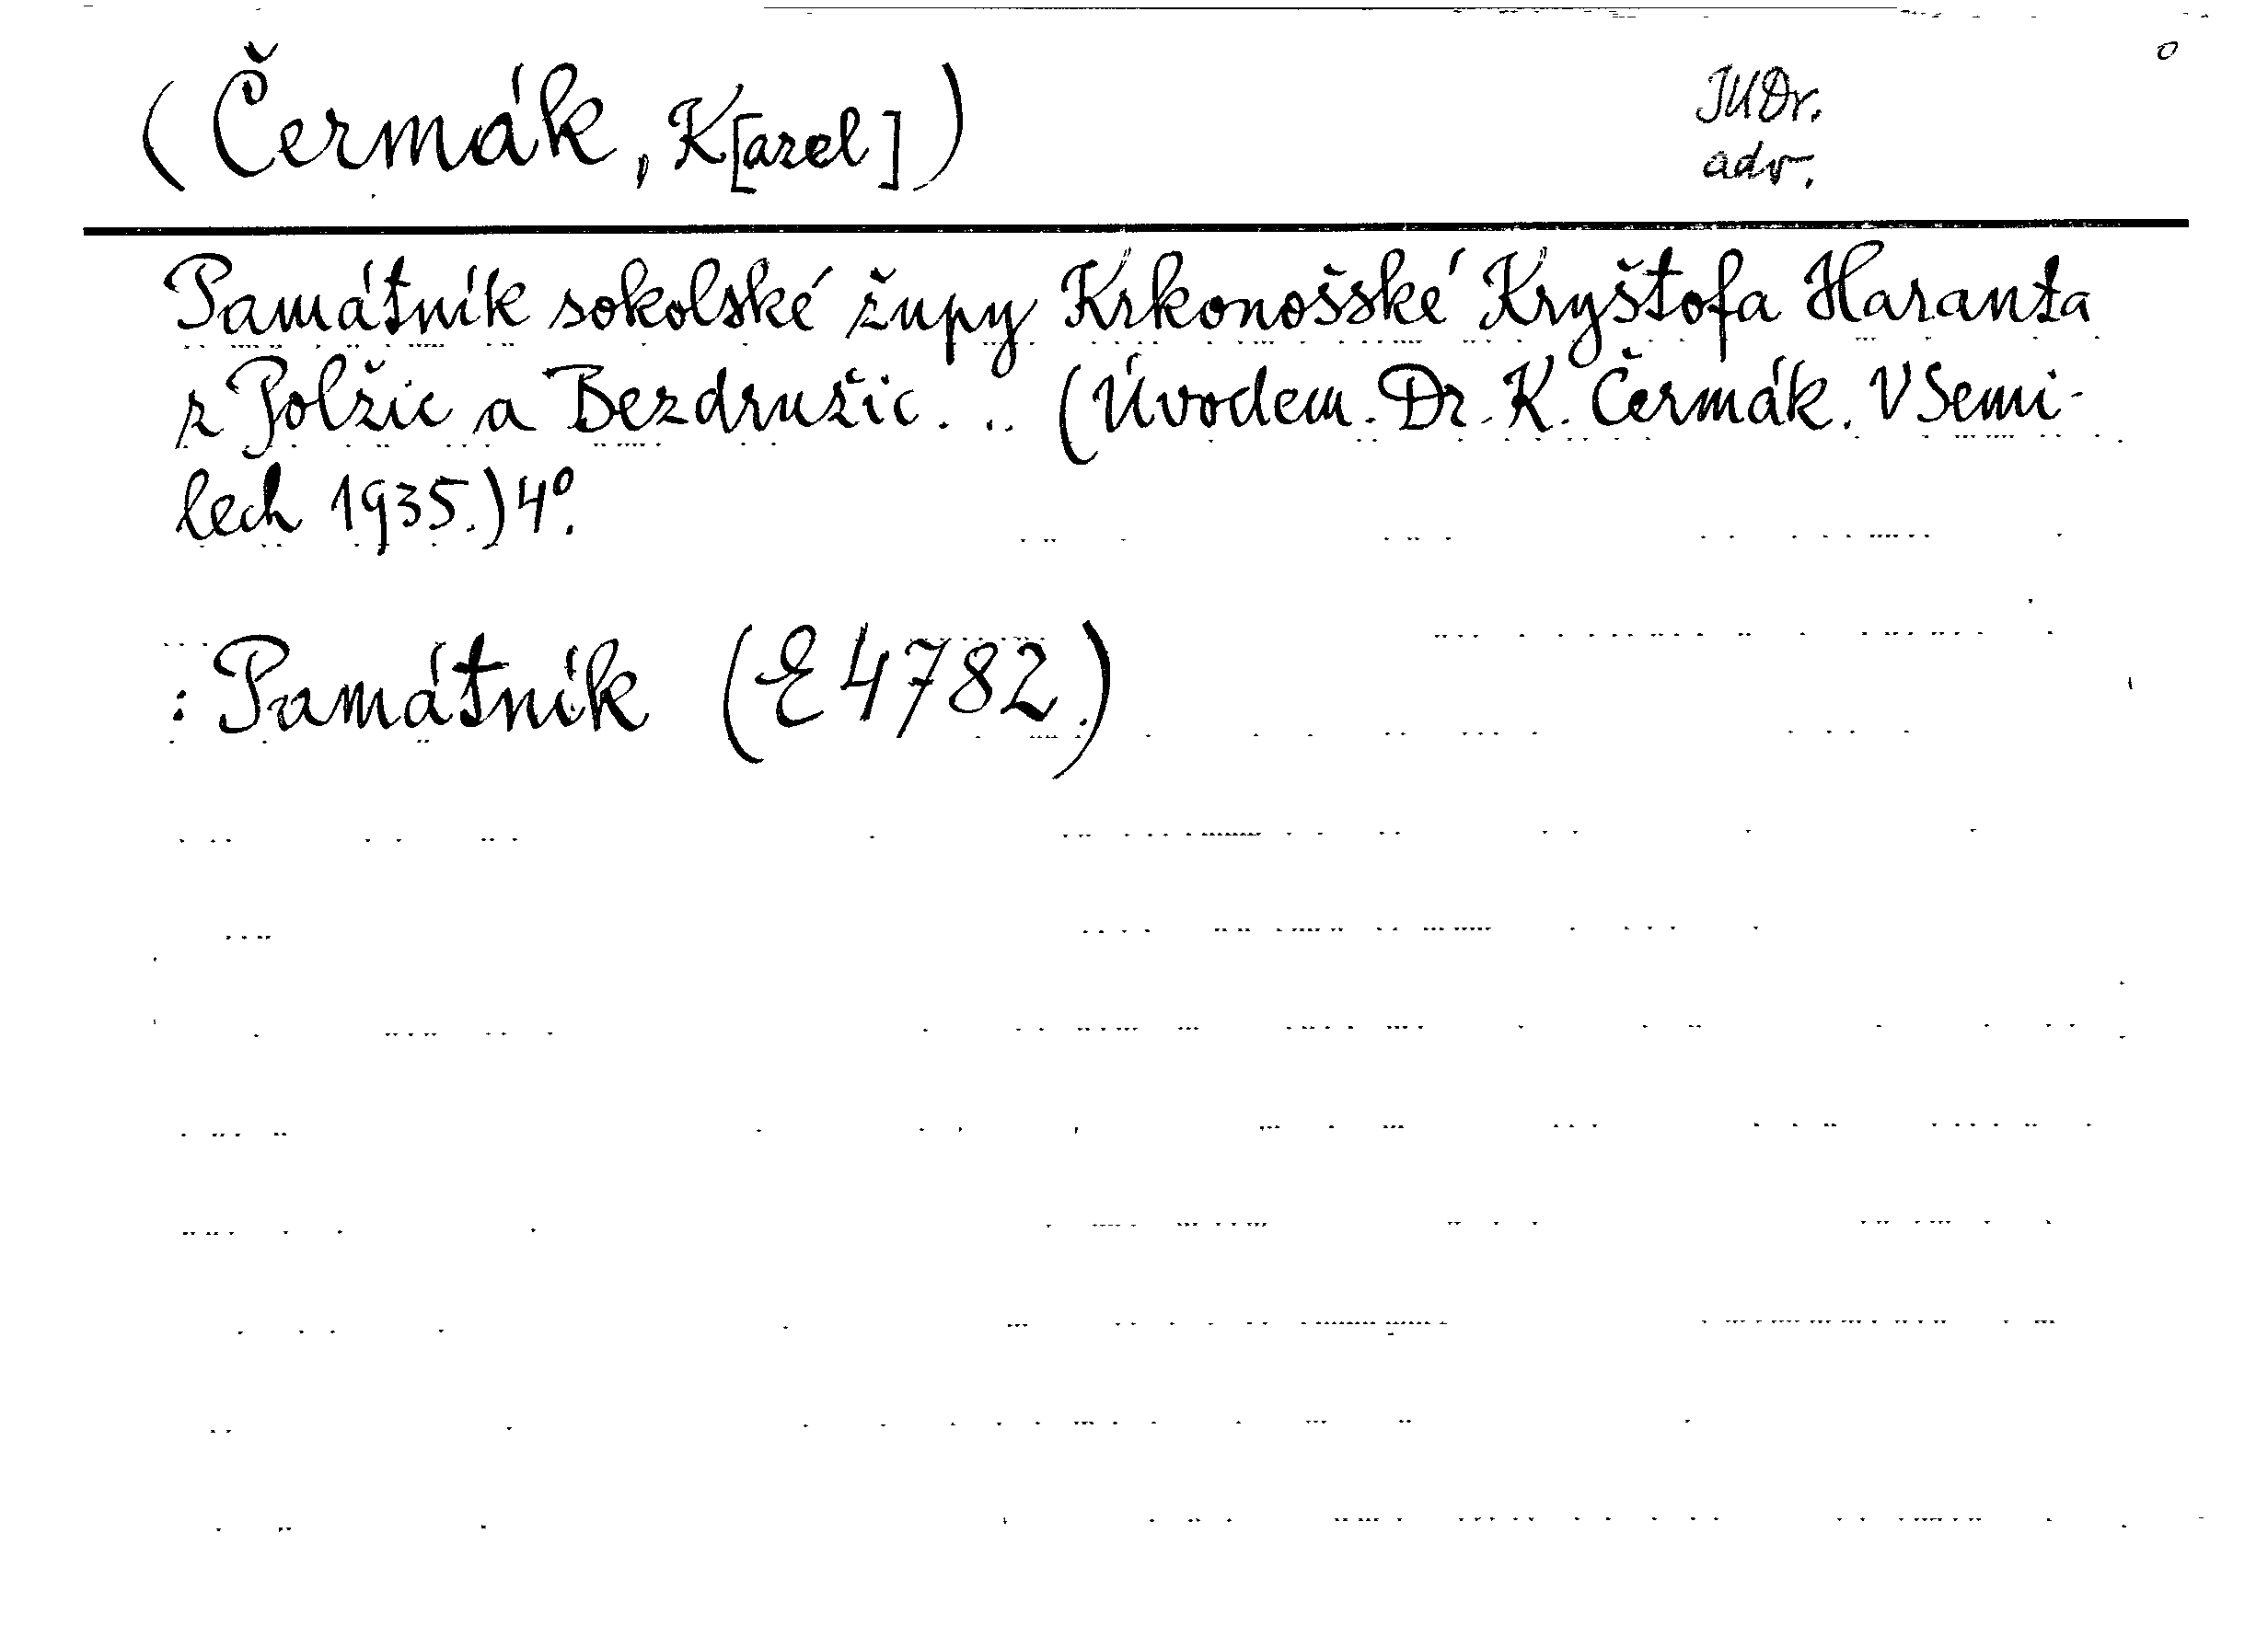 (Čermák, K[arel])
JUDr.
adv.
Památník sokolské župy Krkonošské Kryštofa Haranta
z Polžic a Bezdružic... (Úvodem. Dr. K. Čermák. V Semi-
lech 1935.) 4°.
: Památník (E 4782.)